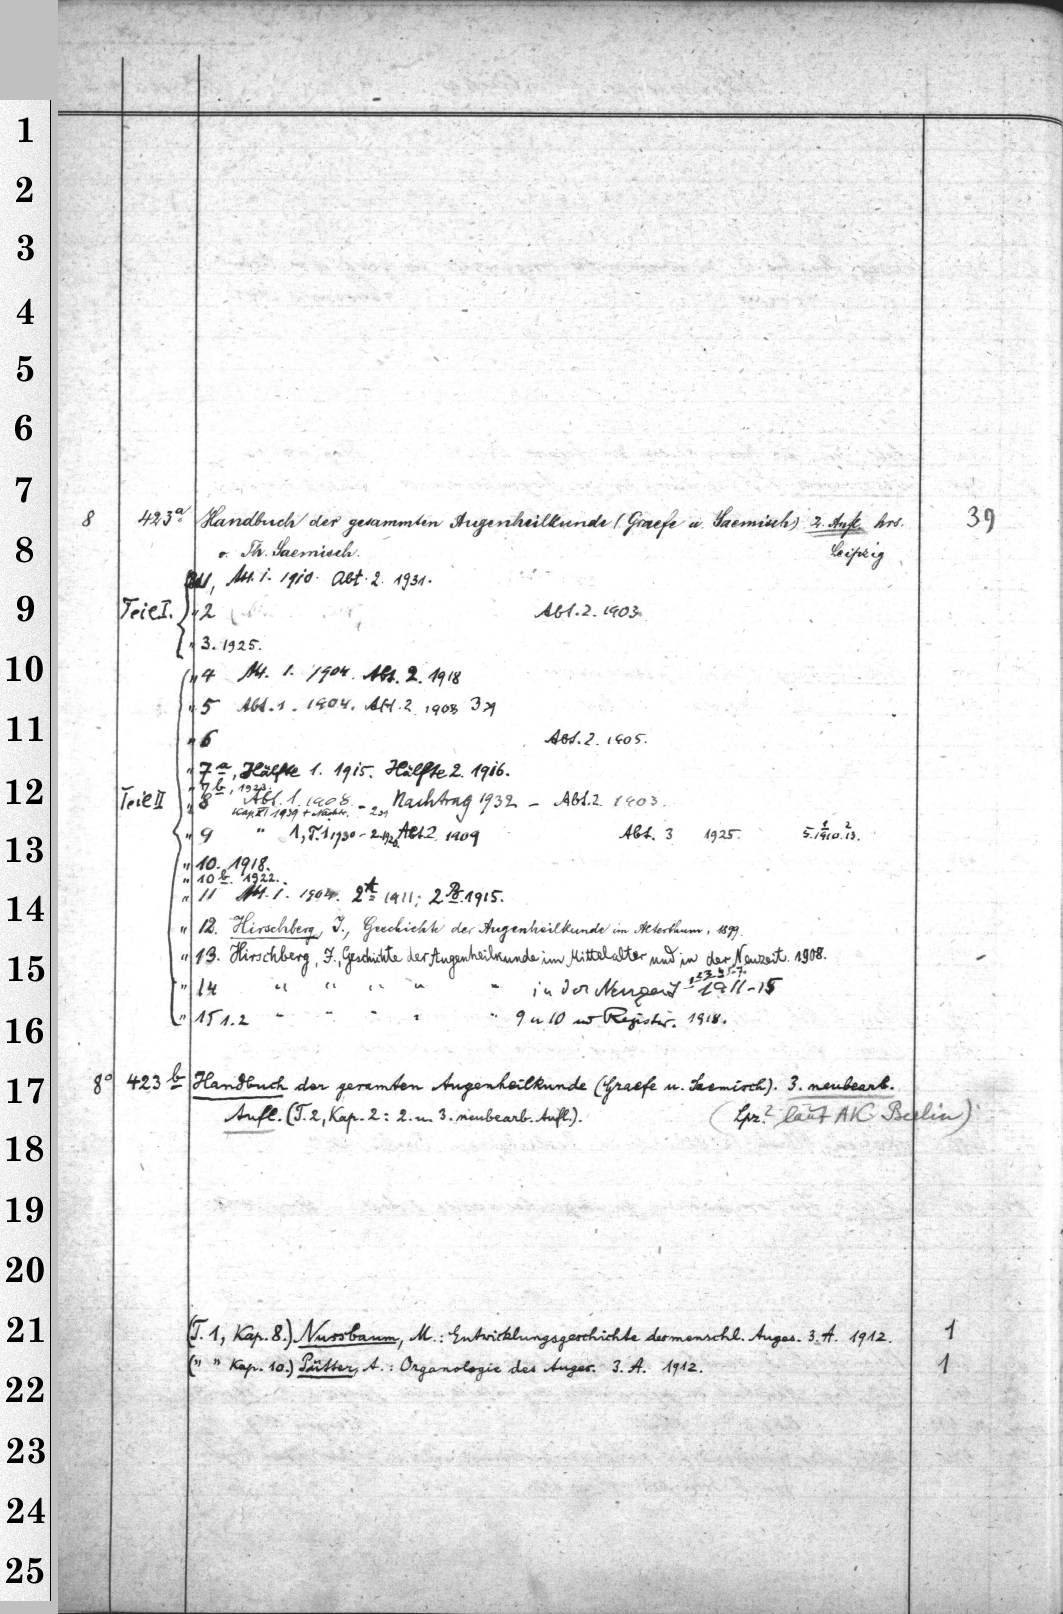 1
2
3
4
5
6
7
8 423a Handbuch der gesammten Augenheilkunde (Graefe u. Saemisch) 2. Aufl. hrs. 39
8
v. Th. Saemisch. Leipzig
Bd 1, Abt. 1. 1910. Abt. 2. 1931.
9
Teil I. " 2 Abt. 2. 1903.
" 3. 1925.
10
" 4 Abt. 1. 1904. Abt. 2. 1918
" 5 Abt. 1. 1904. Abt. 2 1908
11
" 6 Abt. 2. 1905.
" 7a, Hälfte 1. 1915. Hälfte 2. 1916.
" 7b, 1923.
12
Teil II " 8 Abt. 1. 1908. - Nachtrag 1932 - Abt. 2. 1903.
Kap. XI 1939 + Nachtr.
" 9 " 1, T. 1 1930 - Abt 2 1909 Abt. 3 1925.
13
" 10. 1918.
" 10b. 1922.
" 11 Abt. 1. 1904. 2A 1911; 2B 1915.
14
" 12. Hirschberg, J., Geschichte der Augenheilkunde im Alterthum. 1899.
" 13. Hirschberg, J., Geschichte der Augenheilkunde im Mittelalter und in der Neuzeit. 1908.
15
" 14 " " " " " in der Neuzeit 1911-15
" 15 1.2 " " " " " 9 u 10 u Register. 1918.
16
17
8° 423b Handbuch der gesamten Augenheilkunde (Graefe u. Saemisch). 3. neubearb.
Aufl. (T. 2, Kap. 2: 2. u. 3. neubearb. Aufl.). (Lpz.? laut AK Berlin)
18
19
20
21
(T. 1, Kap. 8.) Nussbaum, M.: Entwicklungsgeschichte des menschl. Auges. 3. A. 1912. 1
(" " Kap. 10.) Pütter, A.: Organologie des Auges. 3. A. 1912. 1
22
23
24
25